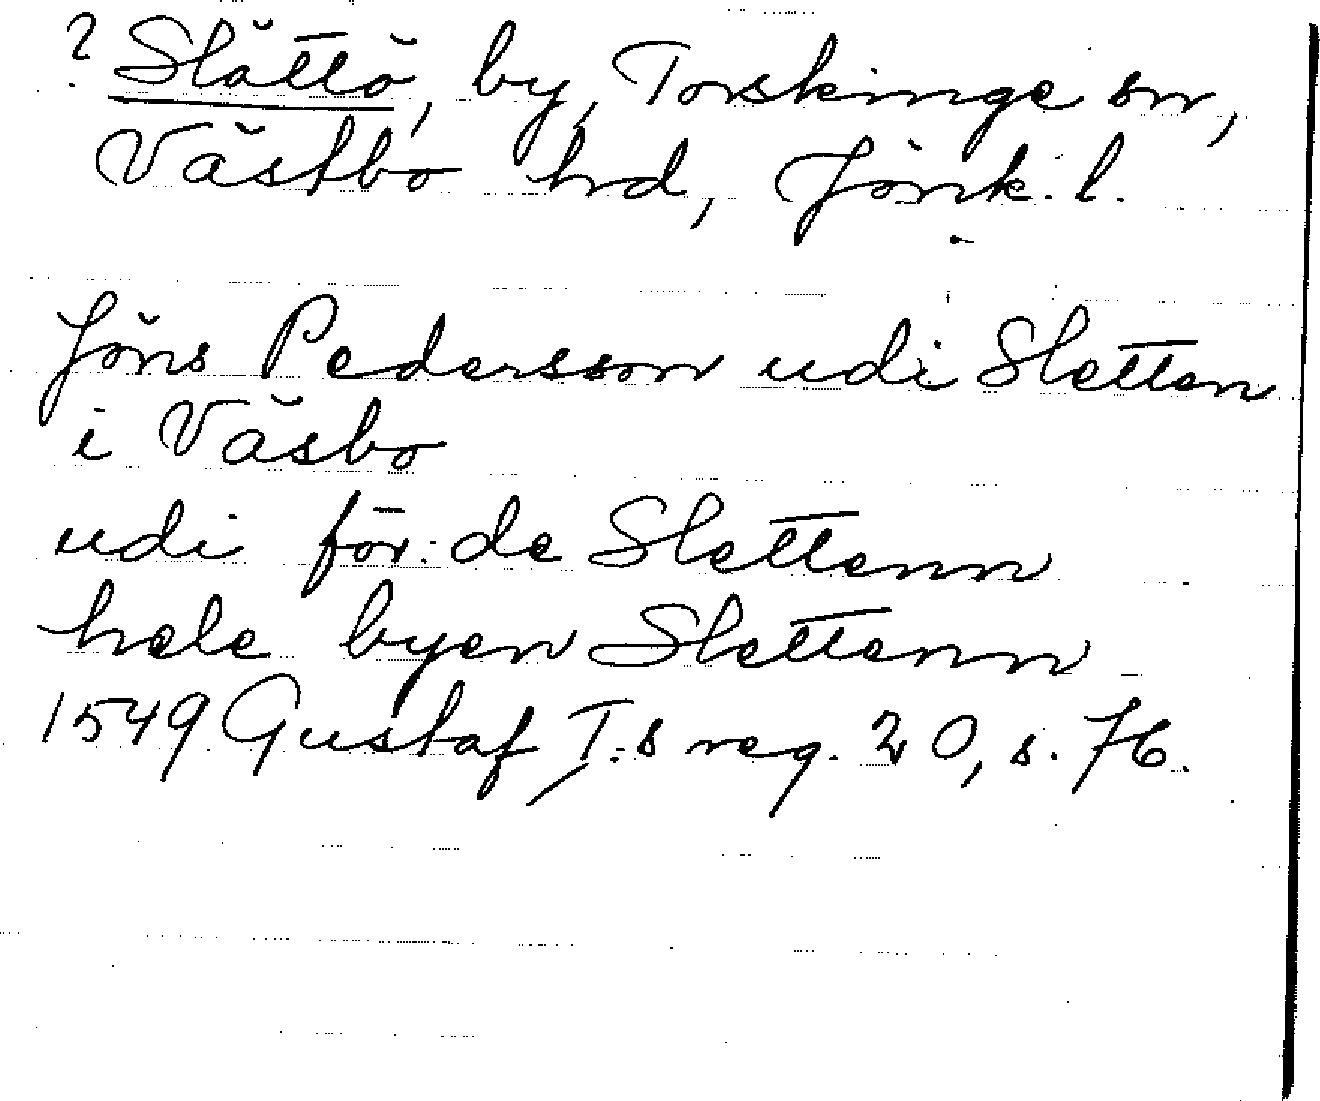 ? Slättö, by, Torskinge sn,
Västbo hd, Jönk. l.
Jöns Pedersson udi Sletten
i Väsbo
udi för:de Slettenn
hele byen Slettenn
1549 Gustaf I:s reg. 20, s. 76.